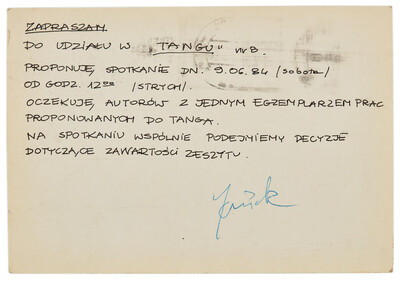 ZAPRASZAM
DO UDZIAŁU W „TANGU" NR 8.
PROPONUJĘ SPOTKANIE DN. 9.06.84 /sobota/
OD GODZ. 12⁰⁰ /STRYCH/.
OCZEKUJĘ AUTORÓW Z JEDNYM EGZEMPLARZEM PRAC
PROPONOWANYCH DO TANGA.
NA SPOTKANIU WSPÓLNIE PODEJMIEMY DECYZJĘ
DOTYCZĄCE ZAWARTOŚCI ZESZYTU.